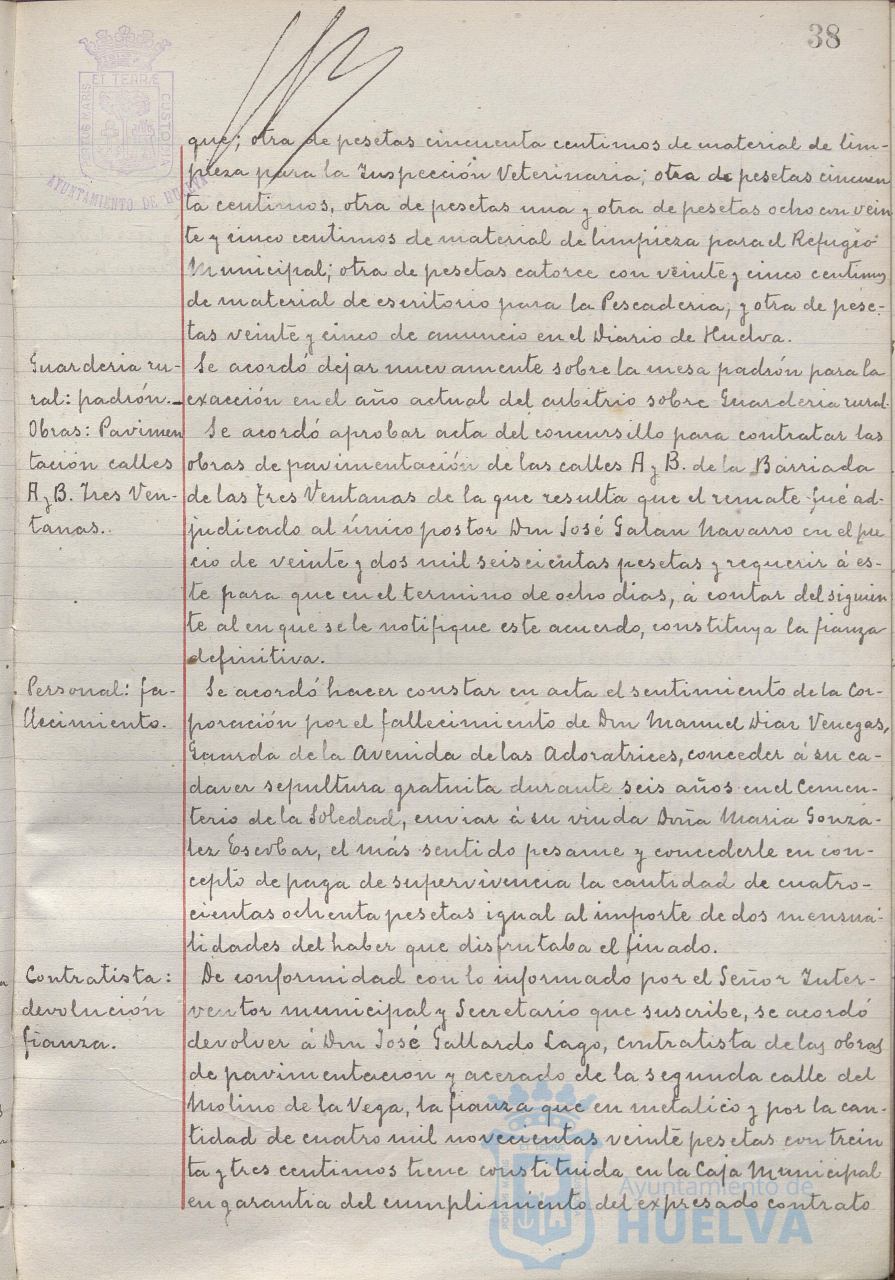 38
PORTUS MARIS ET TERRÆ CUSTODIA
AYUNTAMIENTO DE HUELVA
que; otra de pesetas cincuenta centimos de material de lim-
pieza para la Inspección Veterinaria; otra de pesetas cincuen
ta centimos, otra de pesetas una y otra de pesetas ocho con vein
te y cinco centimos de material de limpieza para el Refugio
Municipal; otra de pesetas catorce con veinte y cinco centimos
de material de escritorio para la Pescaderia; y otra de pese-
tas veinte y cinco de anuncio en el Diario de Huelva.
Guarderia ru-
ral: padrón.-
Se acordó dejar nuevamente sobre la mesa padrón para la
exacción en el año actual del arbitrio sobre Guarderia rural.
Obras: Pavimen
tación calles
A y B. Tres Ven-
tanas.
Se acordó aprobar acta del concursillo para contratar las
obras de pavimentación de las calles A y B. de la Barriada
de las Tres Ventanas de la que resulta que el remate fué ad-
judicado al único postor Don José Galan Navarro en el pre
cio de veinte y dos mil seiscientas pesetas y requerir á es-
te para que en el termino de ocho dias, á contar del siguien
te al en que se le notifique este acuerdo, constituya la fianza
definitiva.
Personal: fa-
llecimiento.
Se acordó hacer constar en acta el sentimiento de la Cor-
poración por el fallecimiento de Don Manuel Diaz Venegas,
Guarda de la Avenida de las Adoratrices, conceder á su ca-
daver sepultura gratuita durante seis años en el Cemen-
terio de la Soledad, enviar á su viuda Doña Maria Gonzá-
lez Escobar, el más sentido pesame y concederle en con-
cepto de paga de supervivencia la cantidad de cuatro-
cientas ochenta pesetas igual al importe de dos mensua-
lidades del haber que disfrutaba el finado.
Contratista:
devolución
fianza.
De conformidad con lo informado por el Señor Inter-
ventor municipal y Secretario que suscribe, se acordó
devolver á Don José Gallardo Lago, contratista de las obras
de pavimentacion y acerado de la segunda calle del
Molino de la Vega, la fianza que en metalico y por la can-
tidad de cuatro mil novecientas veinte pesetas con trein
ta y tres centimos tiene constituida en la Caja Municipal
en garantia del cumplimiento del expresado contrato
Ayuntamiento de
HUELVA